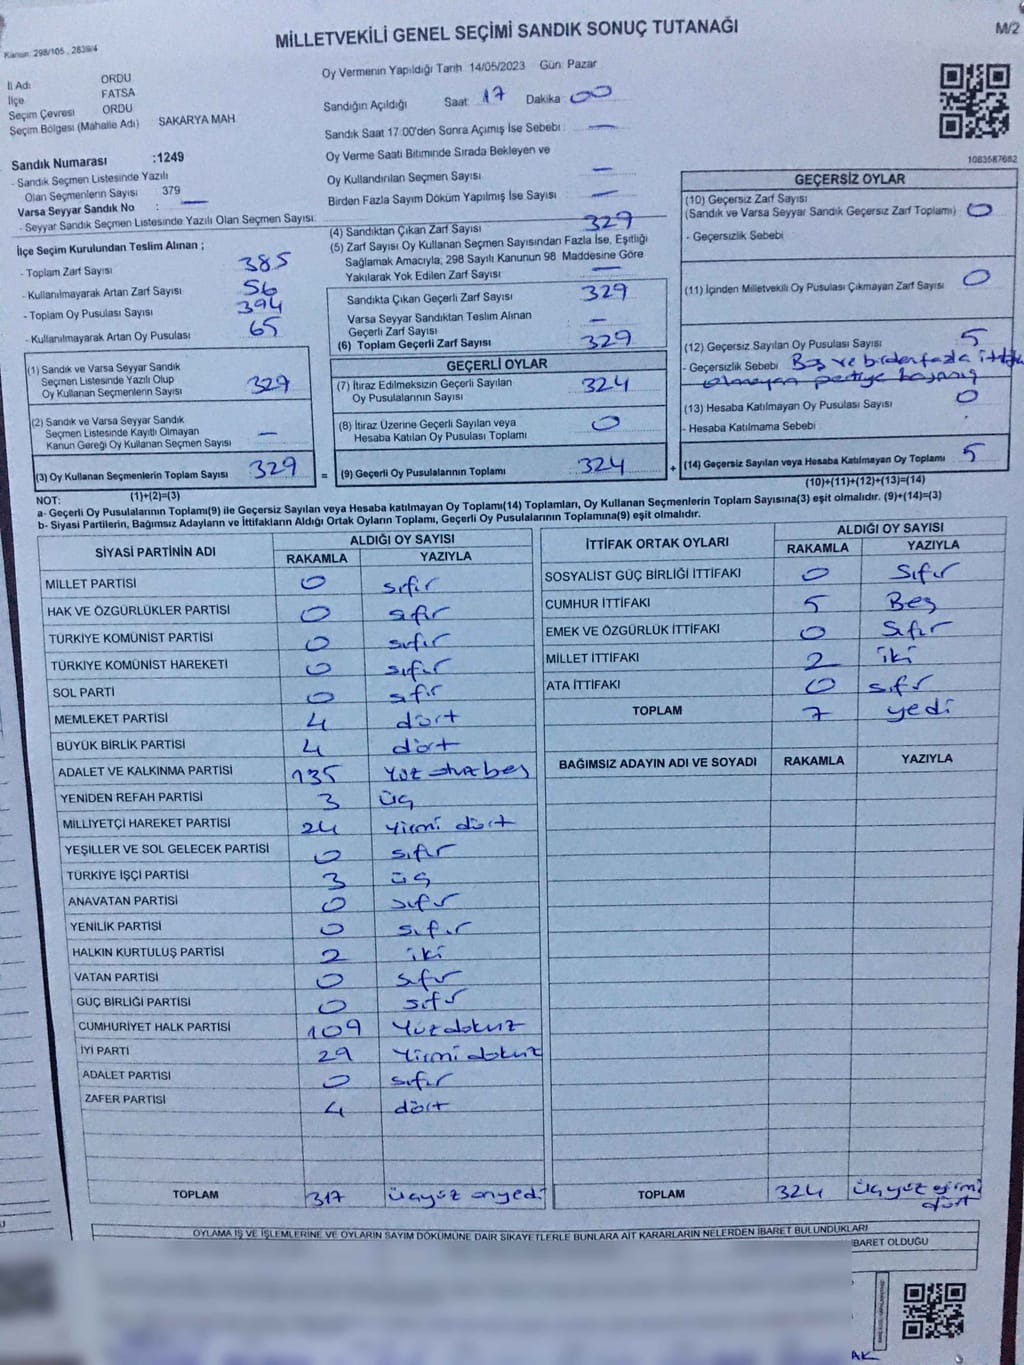 MİLLETVEKİLİ GENEL SEÇİMİ SANDIK SONUÇ TUTANAĞI
M/2
Kanun: 298/105 , 2839/4
İl Adı ORDU
İlçe FATSA
Seçim Çevresi ORDU
Seçim Bölgesi (Mahalle Adı) SAKARYA MAH
Sandık Numarası :1249
- Sandık Seçmen Listesinde Yazılı
Olan Seçmenlerin Sayısı 379
Varsa Seyyar Sandık No : —
- Seyyar Sandık Seçmen Listesinde Yazılı Olan Seçmen Sayısı:
Oy Vermenin Yapıldığı Tarih 14/05/2023 Gün: Pazar
Sandığın Açıldığı Saat: 17 Dakika: 00
Sandık Saat 17:00'den Sonra Açımış İse Sebebi : —
Oy Verme Saati Bitiminde Sırada Bekleyen ve
Oy Kullandırılan Seçmen Sayısı —
Birden Fazla Sayım Döküm Yapılmış İse Sayısı —
1083587682
İlçe Seçim Kurulundan Teslim Alınan ;
- Toplam Zarf Sayısı 385
- Kullanılmayarak Artan Zarf Sayısı 56
- Toplam Oy Pusulası Sayısı 394
- Kullanılmayarak Artan Oy Pusulası 65
(1) Sandık ve Varsa Seyyar Sandık
Seçmen Listesinde Yazılı Olup
Oy Kullanan Seçmenlerin Sayısı 329
(2) Sandık ve Varsa Seyyar Sandık
Seçmen Listesinde Kayıtlı Olmayan
Kanun Gereği Oy Kullanan Seçmen Sayısı —
(3) Oy Kullanan Seçmenlerin Toplam Sayısı 329 =
(1)+(2)=(3)
(4) Sandıktan Çıkan Zarf Sayısı 329
(5) Zarf Sayısı Oy Kullanan Seçmen Sayısından Fazla İse, Eşitliği
Sağlamak Amacıyla; 298 Sayılı Kanunun 98 Maddesine Göre
Yakılarak Yok Edilen Zarf Sayısı —
Sandıkta Çıkan Geçerli Zarf Sayısı 329
Varsa Seyyar Sandıktan Teslim Alınan
Geçerli Zarf Sayısı —
(6) Toplam Geçerli Zarf Sayısı 329
GEÇERLİ OYLAR
(7) İtiraz Edilmeksizin Geçerli Sayılan
Oy Pusulalarının Sayısı 324
(8) İtiraz Üzerine Geçerli Sayılan veya
Hesaba Katılan Oy Pusulası Toplamı 0
(9) Geçerli Oy Pusulalarının Toplamı 324 +
GEÇERSİZ OYLAR
(10) Geçersiz Zarf Sayısı
(Sandık ve Varsa Seyyar Sandık Geçersiz Zarf Toplamı) 0
- Geçersizlik Sebebi
(11) İçinden Milletvekili Oy Pusulası Çıkmayan Zarf Sayısı 0
(12) Geçersiz Sayılan Oy Pusulası Sayısı 5
- Geçersizlik Sebebi Boş ve birden fazla ittifak
olmayan partiye basmış
(13) Hesaba Katılmayan Oy Pusulası Sayısı 0
- Hesaba Katılmama Sebebi
(14) Geçersiz Sayılan veya Hesaba Katılmayan Oy Toplamı 5
(10)+(11)+(12)+(13)=(14)
NOT:
a- Geçerli Oy Pusulalarının Toplamı(9) ile Geçersiz Sayılan veya Hesaba katılmayan Oy Toplamı(14) Toplamları, Oy Kullanan Seçmenlerin Toplam Sayısına(3) eşit olmalıdır. (9)+(14)=(3)
b- Siyasi Partilerin, Bağımsız Adayların ve İttifakların Aldığı Ortak Oyların Toplamı, Geçerli Oy Pusulalarının Toplamına(9) eşit olmalıdır.
SİYASİ PARTİNİN ADI ALDIĞI OY SAYISI
RAKAMLA YAZIYLA
MİLLET PARTİSİ 0 sıfır
HAK VE ÖZGÜRLÜKLER PARTİSİ 0 sıfır
TÜRKİYE KOMÜNİST PARTİSİ 0 sıfır
TÜRKİYE KOMÜNİST HAREKETİ 0 sıfır
SOL PARTİ 0 sıfır
MEMLEKET PARTİSİ 4 dört
BÜYÜK BİRLİK PARTİSİ 4 dört
ADALET VE KALKINMA PARTİSİ 135 Yüz otuz beş
YENİDEN REFAH PARTİSİ 3 üç
MİLLİYETÇİ HAREKET PARTİSİ 24 Yirmi dört
YEŞİLLER VE SOL GELECEK PARTİSİ 0 sıfır
TÜRKİYE İŞÇİ PARTİSİ 3 üç
ANAVATAN PARTİSİ 0 sıfır
YENİLİK PARTİSİ 0 sıfır
HALKIN KURTULUŞ PARTİSİ 2 iki
VATAN PARTİSİ 0 sıfır
GÜÇ BİRLİĞİ PARTİSİ 0 sıfır
CUMHURİYET HALK PARTİSİ 109 Yüz dokuz
İYİ PARTİ 29 Yirmi dokuz
ADALET PARTİSİ 0 sıfır
ZAFER PARTİSİ 4 dört
TOPLAM 317 üçyüz onyedi
İTTİFAK ORTAK OYLARI ALDIĞI OY SAYISI
RAKAMLA YAZIYLA
SOSYALİST GÜÇ BİRLİĞİ İTTİFAKI 0 Sıfır
CUMHUR İTTİFAKI 5 Beş
EMEK VE ÖZGÜRLÜK İTTİFAKI 0 Sıfır
MİLLET İTTİFAKI 2 iki
ATA İTTİFAKI 0 sıfır
TOPLAM 7 yedi
BAĞIMSIZ ADAYIN ADI VE SOYADI RAKAMLA YAZIYLA
TOPLAM 324 üçyüz yirmi
dört
OYLAMA İŞ VE İŞLEMLERİNE VE OYLARIN SAYIM DÖKÜMÜNE DAİR ŞİKAYETLERLE BUNLARA AİT KARARLARIN NELERDEN İBARET BULUNDUKLARI
İBARET OLDUĞU
AK